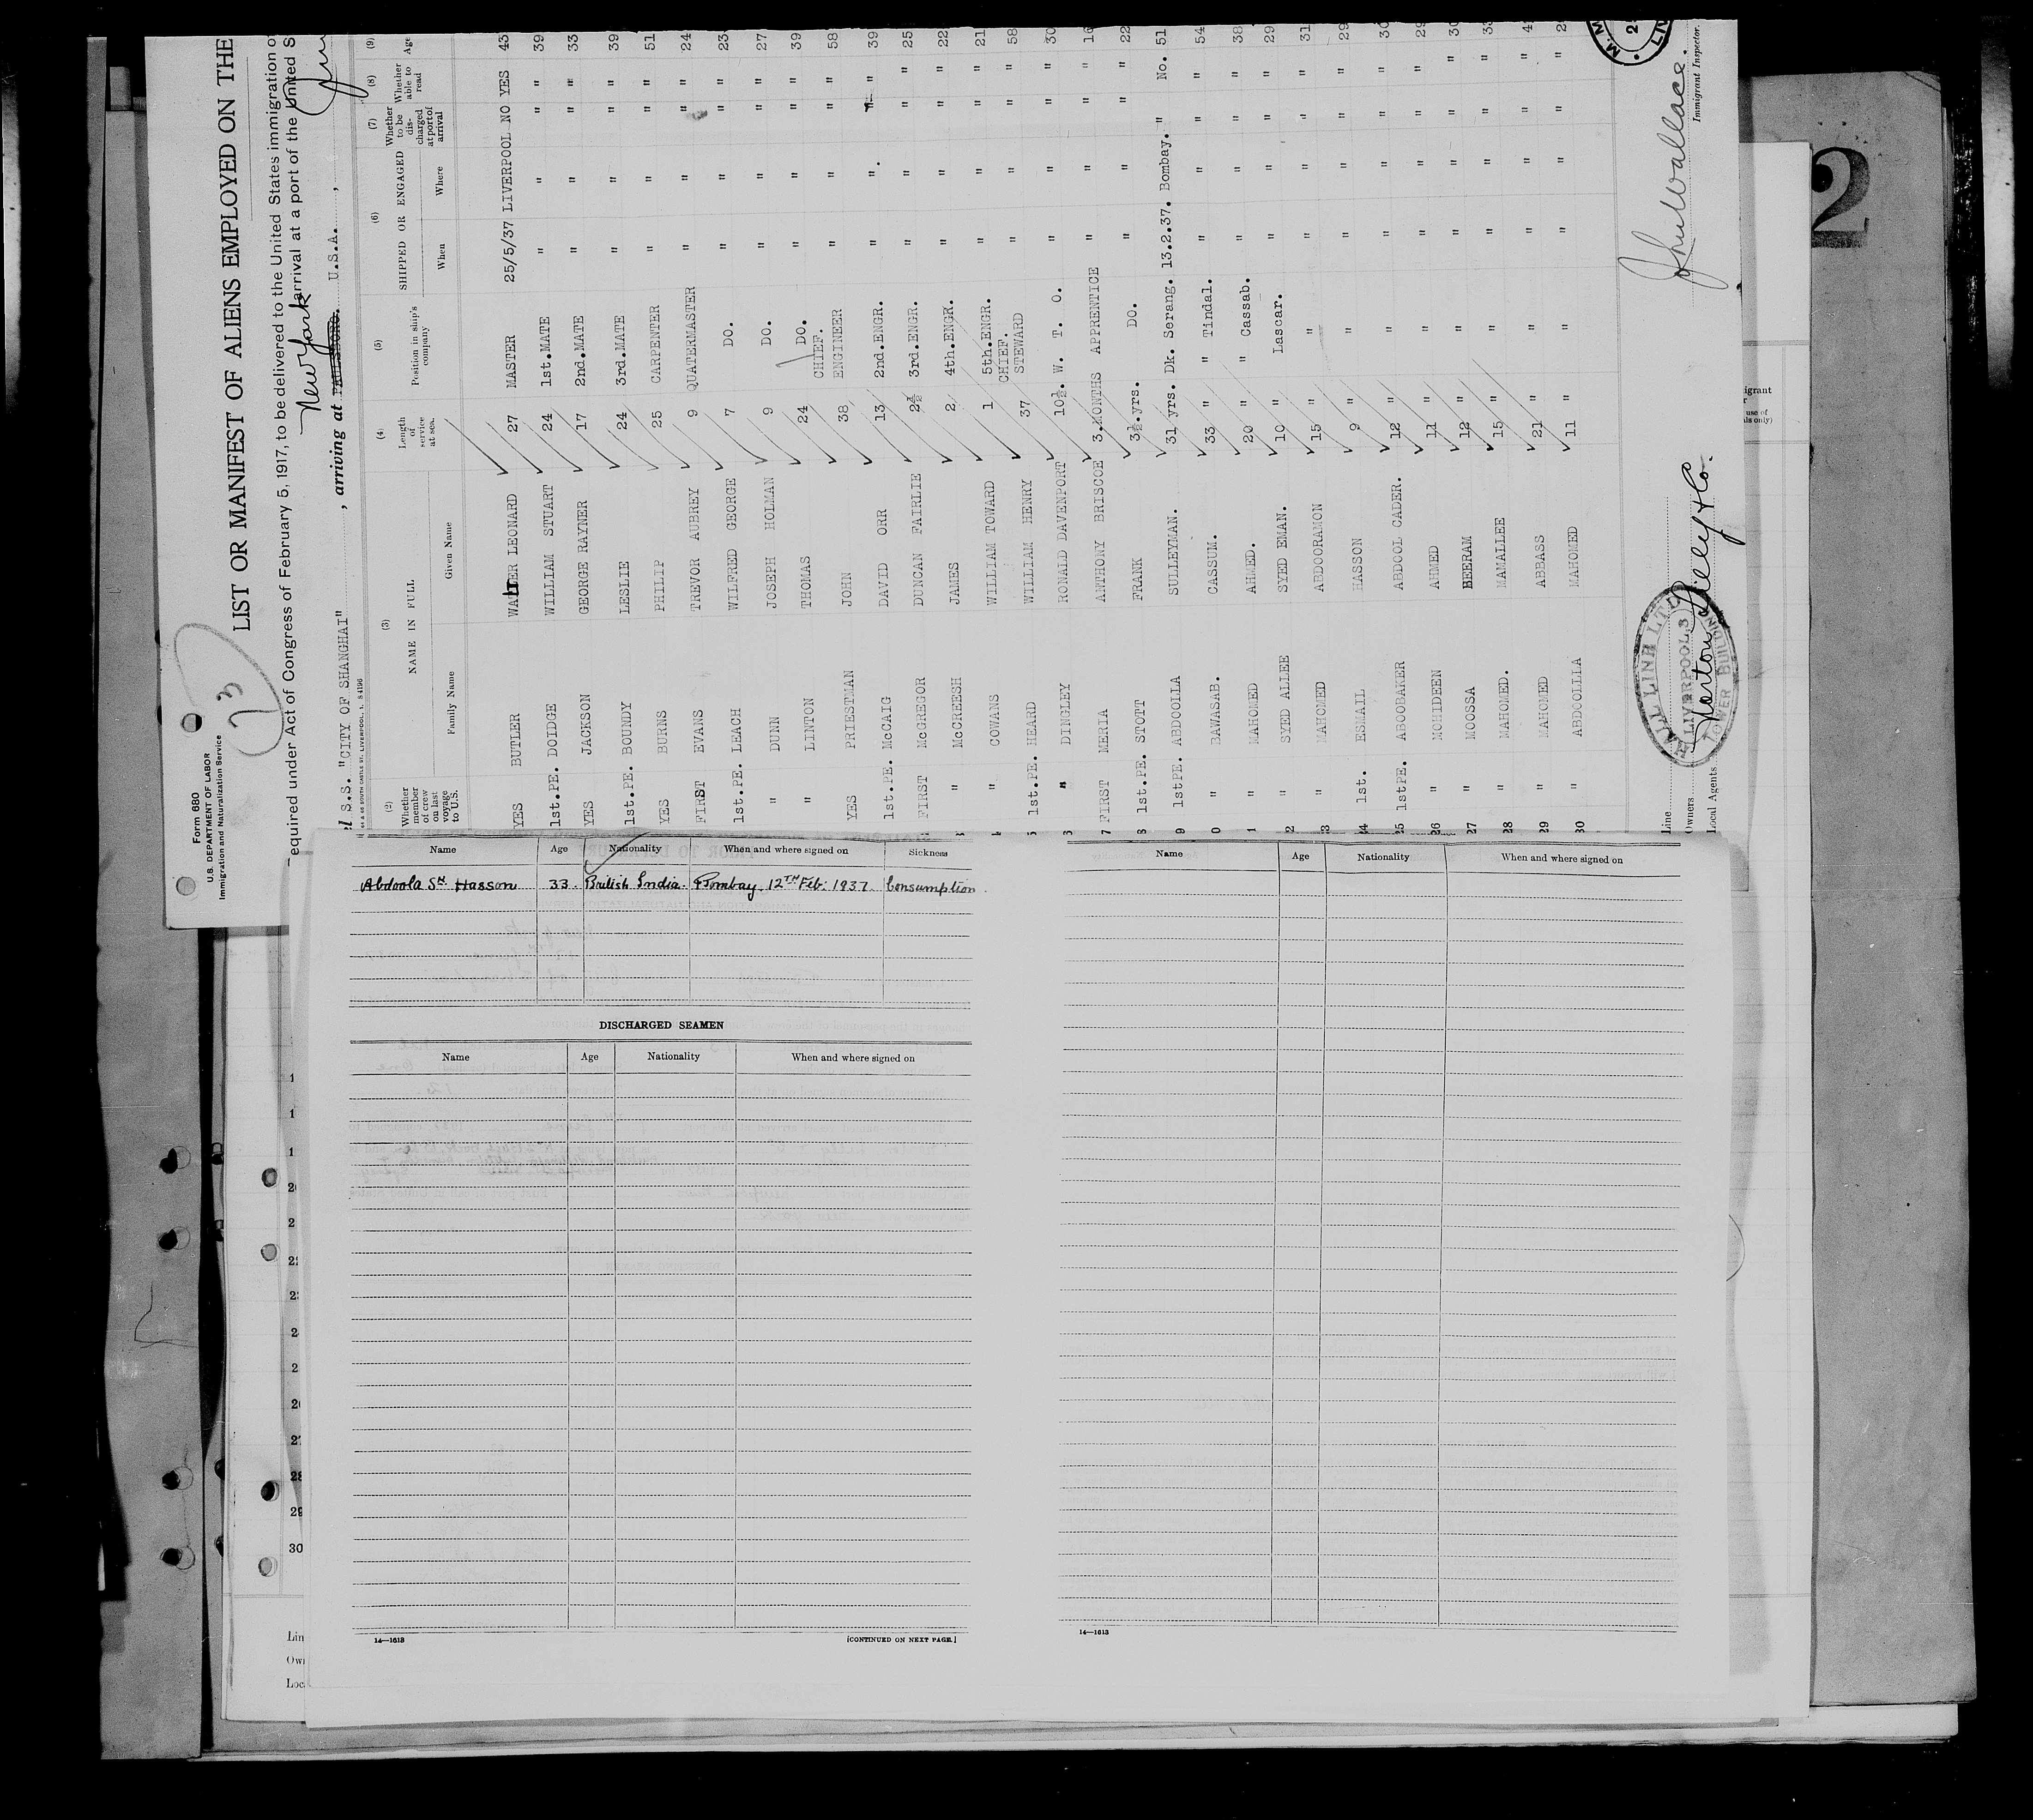 Form 680
U.S. DEPARTMENT OF LABOR
Immigration and Naturalization Service
23
LIST OR MANIFEST OF ALIENS EMPLOYED ON THE
equired under Act of Congress of February 5, 1917, to be delivered to the United States immigration o
arrival at a port of the United S
New York
S.S. "CITY OF SHANGHAI" , arriving at PAULSBORO. U.S.A. ,
(2) Whether member of crew on last voyage to U.S. (3) NAME IN FULL Family Name Given Name (4) Length of service at sea. (5) Position in ship's company (6) SHIPPED OR ENGAGED When Where (7) Whether to be discharged at port of arrival (8) Whether able to read (9) Age
YES BUTLER WALTER LEONARD 27 MASTER 25/5/37 LIVERPOOL NO YES 43
1st.PE. DOIDGE WILLIAM STUART 24 1st.MATE " " " " 39
YES JACKSON GEORGE RAYNER 17 2nd.MATE " " " " 33
1st.PE. BOUNDY LESLIE 24 3rd.MATE " " " " 39
YES BURNS PHILIP 25 CARPENTER " " " " 51
FIRST EVANS TREVOR AUBREY 9 QUATERMASTER " " " " 24
1st.PE. LEACH WILFRED GEORGE 7 DO. " " " " 23
" DUNN JOSEPH HOLMAN 9 DO. " " " " 27
" LINTON THOMAS 24 DO. " " " " 39
YES PRIESTMAN JOHN 38 CHIEF. ENGINEER " " " " 58
1st.PE. McCAIG DAVID ORR 13 2nd.ENGR. " ". " " 39
FIRST McGREGOR DUNCAN FAIRLIE 2½ 3rd.ENGR. " " " " 25
" McCREESH JAMES 2 4th.ENGR. " " " " 22
" COWANS WILLIAM TOWARD 1 5th.ENGR. " " " " 21
1st.PE. HEARD WILLIAM HENRY 37 CHIEF. STEWARD " " " " 58
" DINGLEY RONALD DAVENPORT 10½. W. T. O. " " " " 30
7 FIRST MERIA ANTHONY BRISCOE 3.MONTHS APPRENTICE " " " " 16
8 1st.PE. STOTT FRANK 3½.yrs. DO. " " " " 22
9 1stPE. ABDOOLLA SULLEYMAN. 31 yrs. Dk. Serang. 13.2.37. Bombay. " No. 51
0 " BAWASAB. CASSUM. 33 " " Tindal. " " " " 54
1 " MAHOMED AHMED. 20 " " Cassab. " " " " 38
2 " SYED ALLEE SYED EMAN. 10 " Lascar. " " " " 29
3 " MAHOMED ABDOORAMON 15 " " " " " " 31
24 1st. ESMAIL HASSON 9 " " " " " " 29
25 1stPE. ABOOBAKER ABDOOL CADER. 12 " " " " " " 30
26 " MOHIDEEN AHMED 11 " " " " " " 29
27 " MOOSSA BEERAM 12 " " " " " " 30
28 " MAHOMED. MAMALLEE 15 " " " " " "
29 " MAHOMED ABBASS 21 " " " " " "
30 " ABDOOLLLA MAHOMED 11 " " " " " "
Line
Owners
Local Agents Norton Lilly & Co.
LIVERPOOL, 3
TOWER BUILDING
Jno Wallace.
Immigrant Inspector.
2
Name Age Nationality When and where signed on Sickness
Abdoola Sk Hasson 33. British India. Bombay. 12TH Feb: 1937. Consumption.
DISCHARGED SEAMEN
Name Age Nationality When and where signed on
14—1613
[CONTINUED ON NEXT PAGE.]
Name Age Nationality When and where signed on
14—1613
28
29
30
Lin
Own
Loc